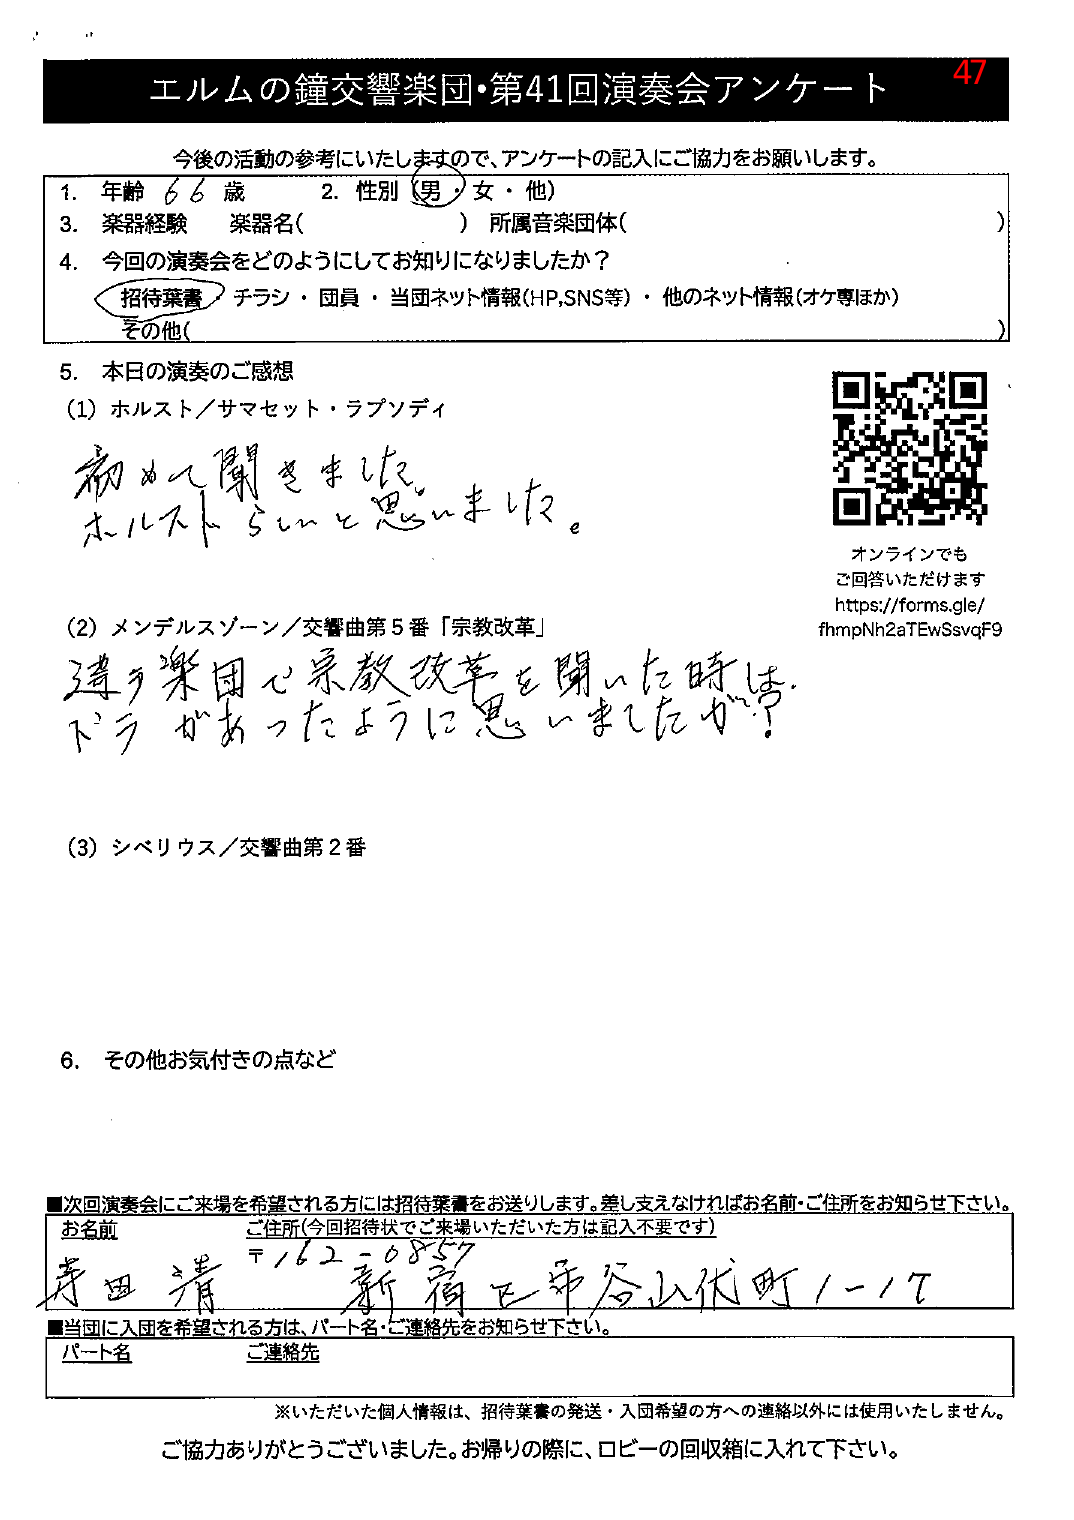 47
エルムの鐘交響楽団・第41回演奏会アンケート
今後の活動の参考にいたしますので、アンケートの記入にご協力をお願いします。
1. 年齢 66 歳 2. 性別 (男・女・他)
3. 楽器経験 楽器名( ) 所属音楽団体( )
4. 今回の演奏会をどのようにしてお知りになりましたか？
招待葉書・チラシ・団員・当団ネット情報(HP,SNS等)・他のネット情報(オケ専ほか)
その他( )
5. 本日の演奏のご感想
(1) ホルスト／サマセット・ラプソディ
初めて聞きました。
ホルストらしいと思いました。
オンラインでも
ご回答いただけます
https://forms.gle/
fhmpNh2aTEwSsvqF9
(2) メンデルスゾーン／交響曲第５番「宗教改革」
違う楽団で宗教改革を聞いた時は、
ドラがあったように思いましたが？
(3) シベリウス／交響曲第２番
6. その他お気付きの点など
■次回演奏会にご来場を希望される方には招待葉書をお送りします。差し支えなければお名前・ご住所をお知らせ下さい。
お名前 ご住所(今回招待状でご来場いただいた方は記入不要です)
〒162-0857
寿田 清 新宿区市谷山伏町1-17
■当団に入団を希望される方は、パート名・ご連絡先をお知らせ下さい。
パート名 ご連絡先
※いただいた個人情報は、招待葉書の発送・入団希望の方への連絡以外には使用いたしません。
ご協力ありがとうございました。お帰りの際に、ロビーの回収箱に入れて下さい。